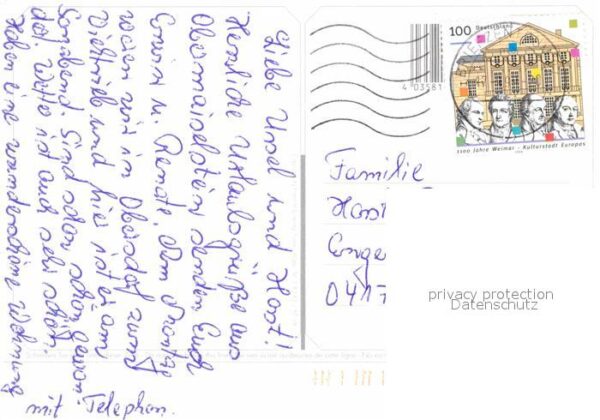 Liebe Ursel und Horst!
Herzliche Urlaubsgrüße aus
Obermaiselstein senden Euch
Erwin u. Renate. Am Dienstag
waren wir in Oberstdorf zum
Viehtrieb und hier ist er am
Sonnabend. Sind schon schön gewan.
das Wetter ist auch sehr schön.
Haben eine wunderschöne Wohnung
mit Telephon.
100 Deutschland
1100 Jahre Weimar - Kulturstadt Europas
4 03581
Familie
Horst
Enge
0417
privacy protection
Datenschutz